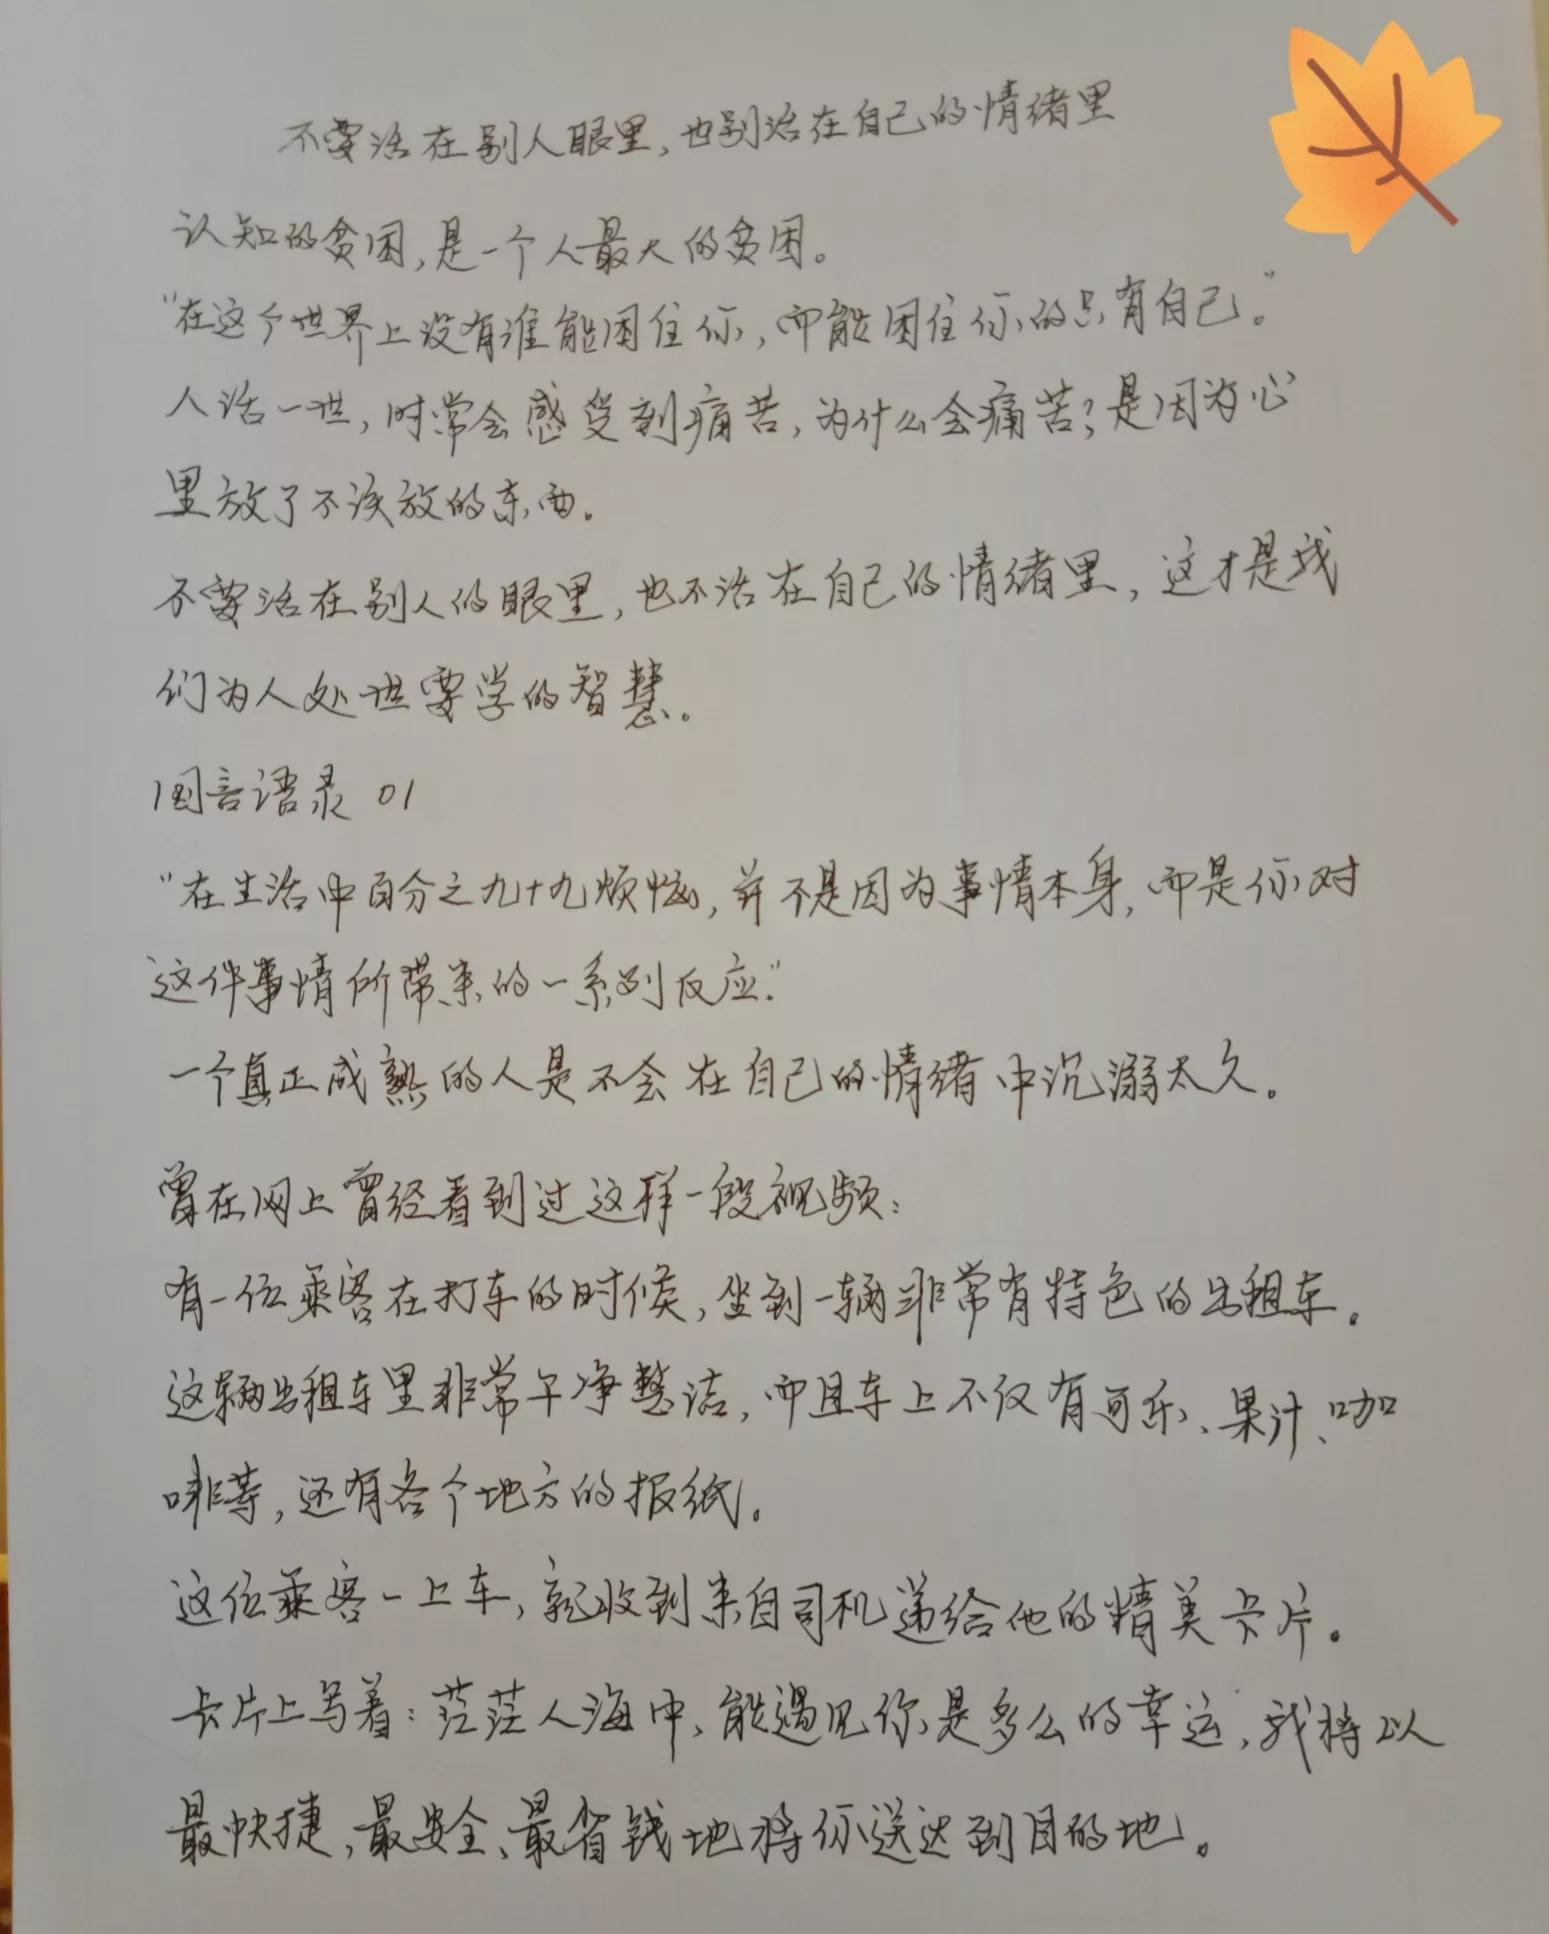 不要活在别人眼里，也别活在自己的情绪里
认知的贫困，是一个人最大的贫困。
“在这个世界上没有谁能困住你，而能困住你的只有自己。”
人活一世，时常会感受到痛苦，为什么会痛苦？是因为心
里放了不该放的东西。
不要活在别人的眼里，也不活在自己的情绪里，这才是我
们为人处世要学的智慧。
国言语录 01
“在生活中百分之九十九烦恼，并不是因为事情本身，而是你对
这件事情所带来的一系列反应。”
一个真正成熟的人是不会在自己的情绪中沉溺太久。
曾在网上曾经看到过这样一段视频：
有一位乘客在打车的时候，坐到一辆非常有特色的出租车。
这辆出租车里非常干净整洁，而且车上不仅有可乐、果汁、咖
啡等，还有各个地方的报纸。
这位乘客一上车，就收到来自司机递给他的精美卡片。
卡片上写着：茫茫人海中，能遇见你是多么的幸运，我将以
最快捷、最安全、最省钱地将你送达到目的地。